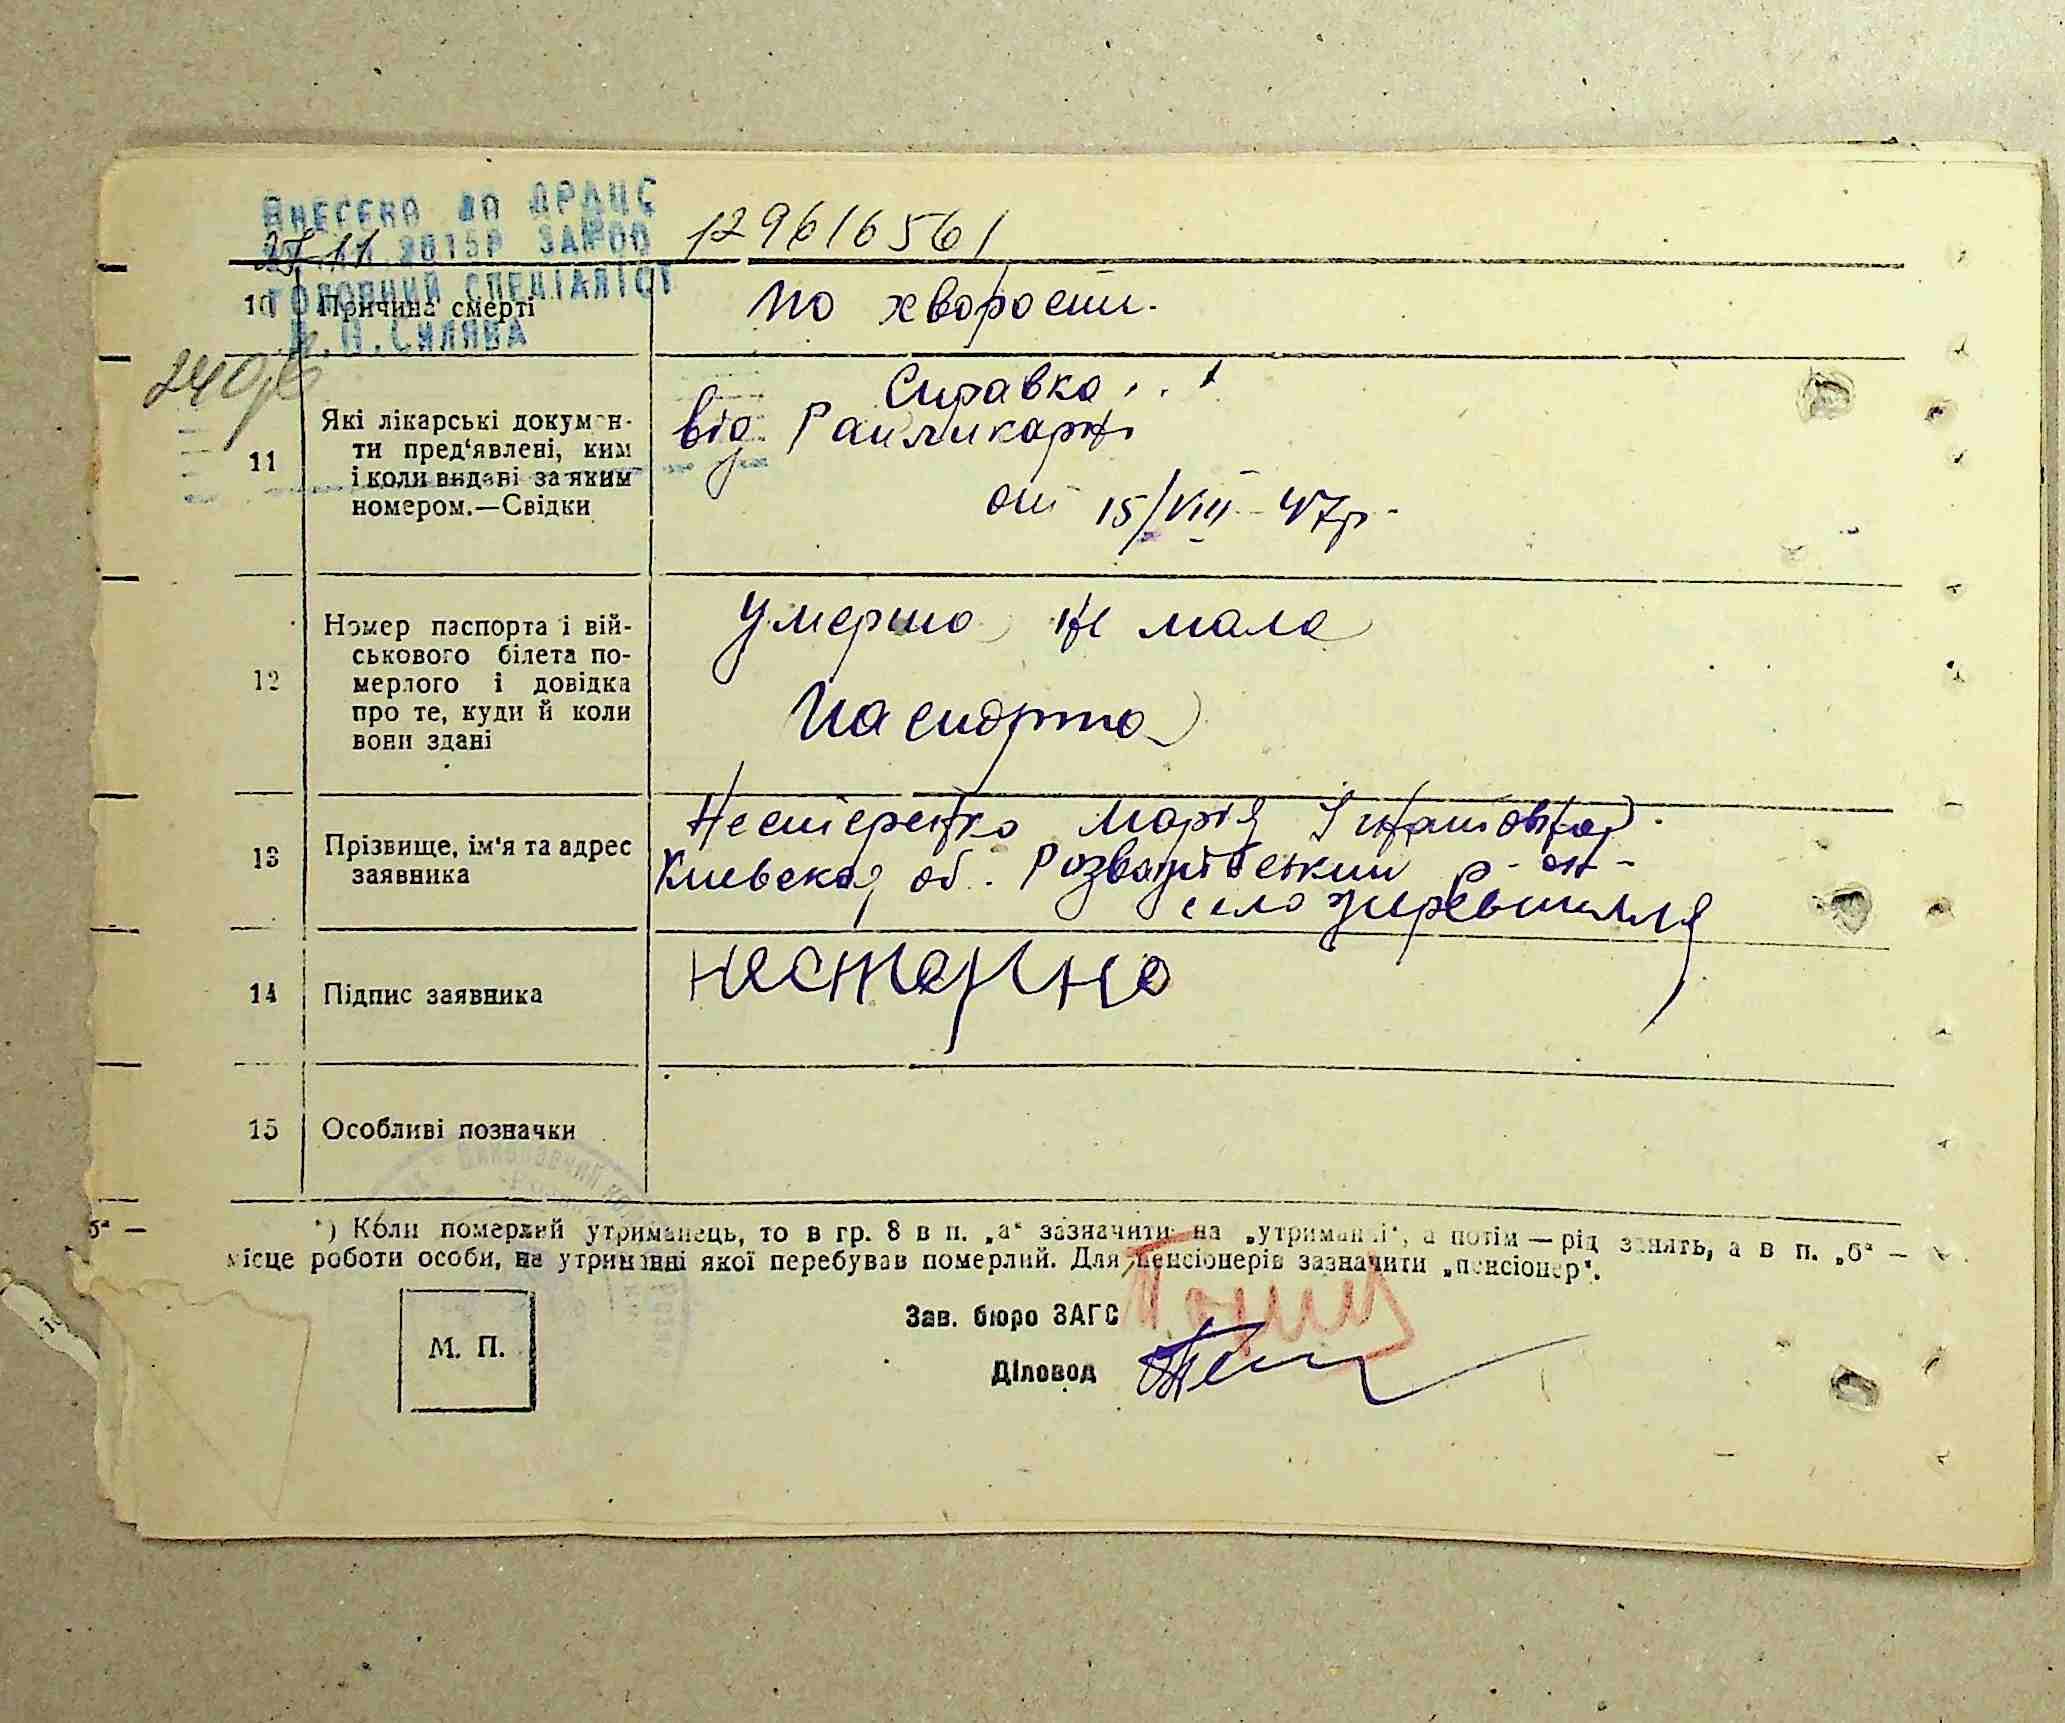 Внесено до ДРАЦС
27.11.2015р за №00 129616561
головний спеціаліст
Силява
10 Причина смерті
по хворости.
240
11 Які лікарські докумен-
ти пред'явлені, ким
і коли видані за яким
номером.—Свідки
Справка
від Райликарні
от 15/VIII 47р.
12 Номер паспорта і вій-
ськового білета по-
мерлого і довідка
про те, куди й коли
вони здані
умерша не мала
паспорта
13 Прізвище, ім'я та адрес
заявника
Нестеренко Марія Ігнатовна
Киевская об. Розважівський р-он-
село
14 Підпис заявника
15 Особливі позначки
*) Коли померлий утриманець, то в гр. 8 в п. „а“ зазначити на „утриманні“, а потім — рід занять, а в п. „б“ —
місце роботи особи, на утриманні якої перебував померлий. Для пенсіонерів зазначити „пенсіонер“.
б“ —
Зав. бюро ЗАГС
М. П.
Діловод